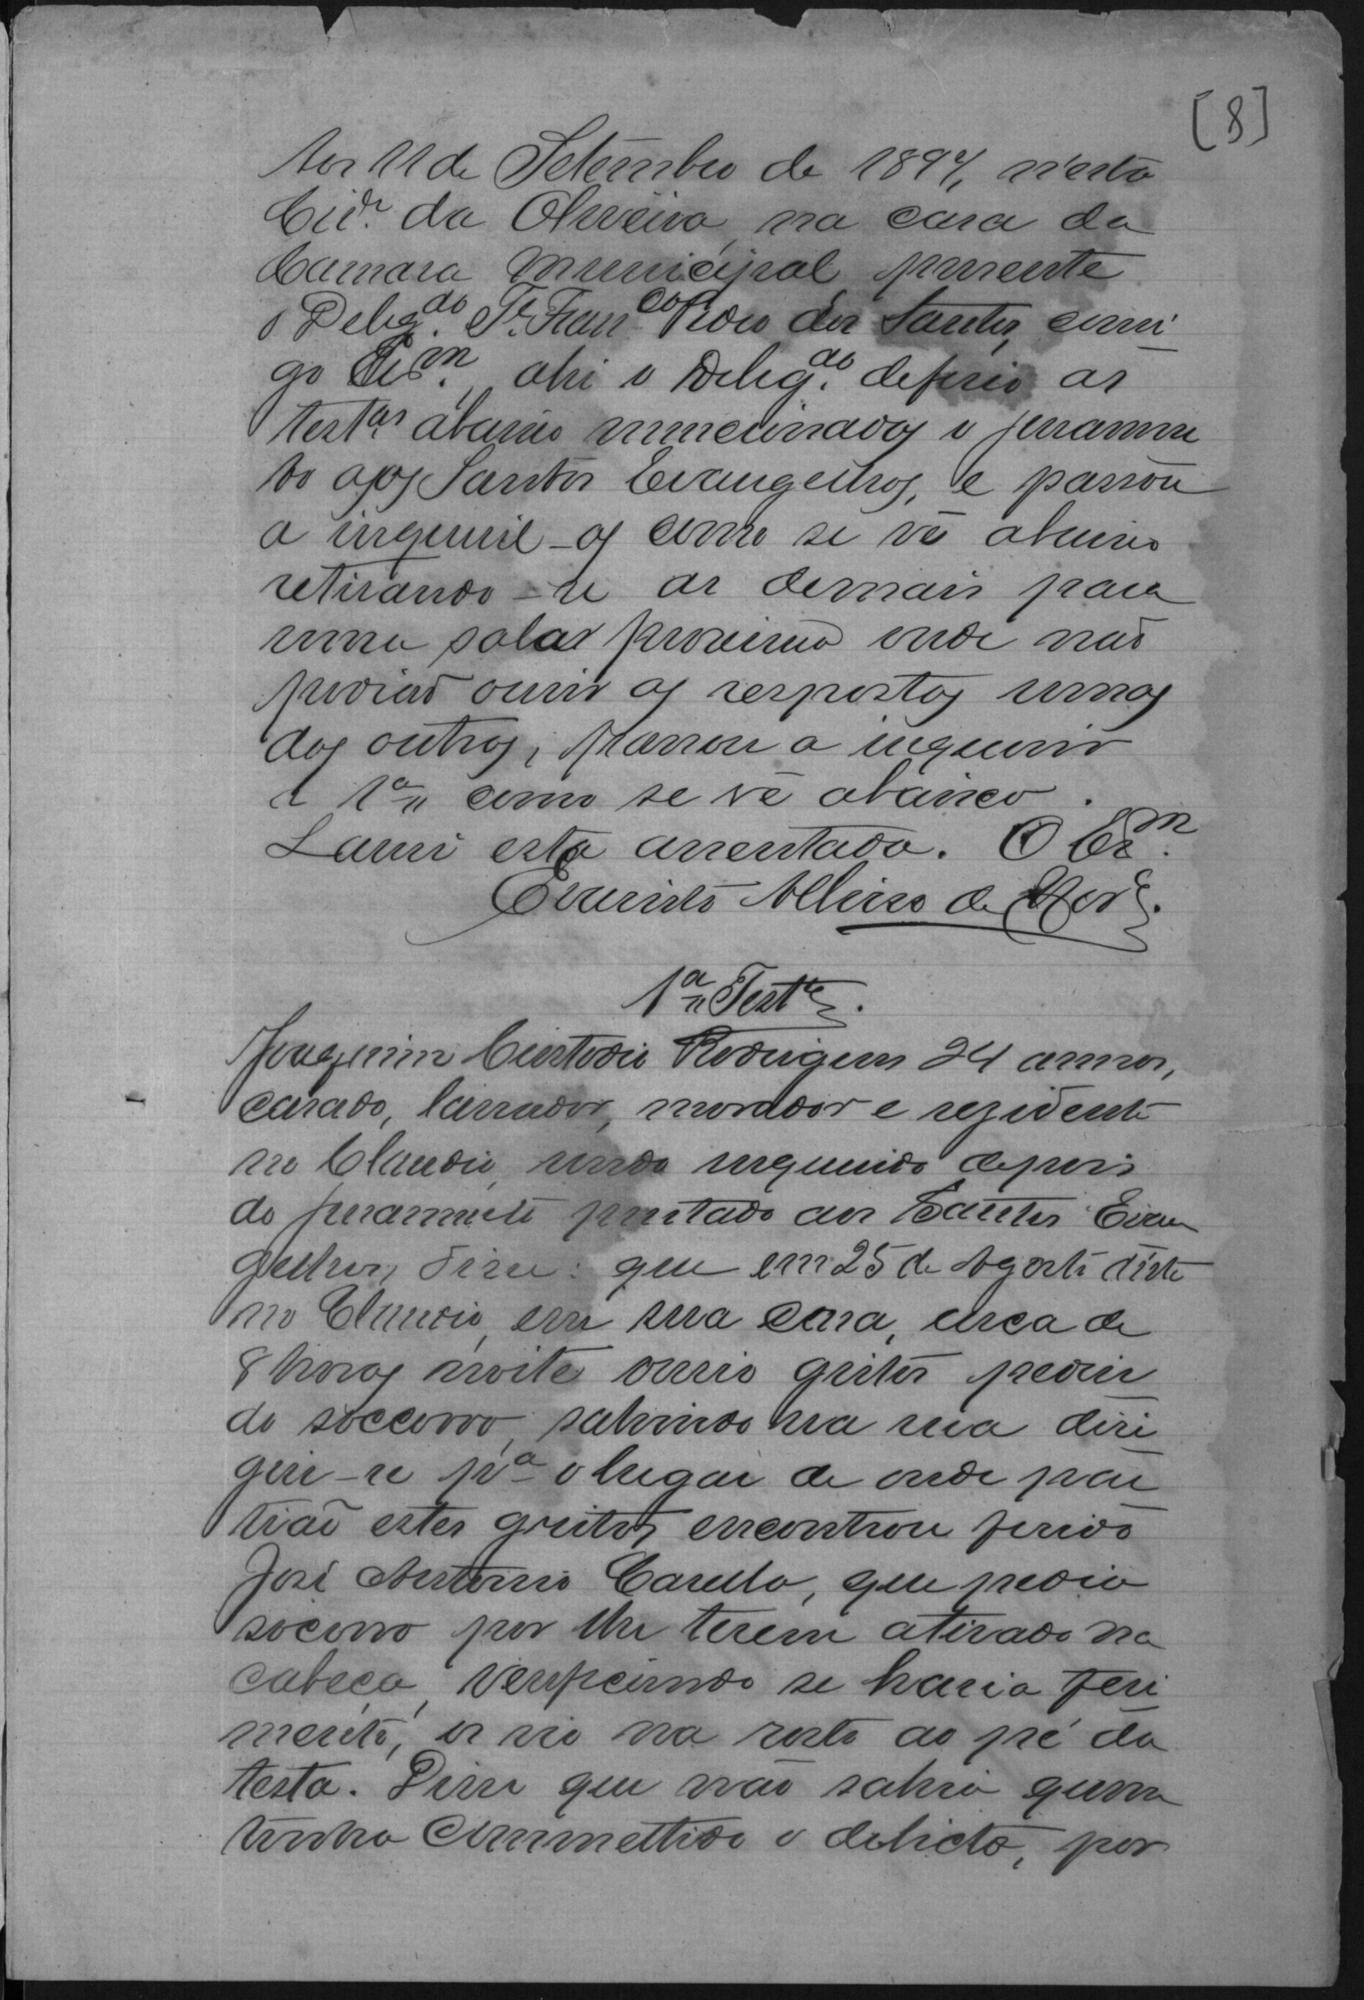 [8]
Aos 11 de Setembro de 1894, n'esta
Cid.e da Oliveira, na casa da
Camara Municipal, presente
o Deleg.do T.e Fran.co dos Santos, comi-
go Escm., ahi o Deleg.do deferio as
test.as abaixo mencionadas o juramen
to aos Santos Evangelhos, e passou
a inqueril-as como se vê abaixo
retirando-se as demais para
uma sala proxima onde não
podião ouvir as respostas umas
das outras, passou a inquerir
a 1.a como se vê abaixo.
Lavrei esta assentada. O Escm.
Evaristo Albino de
1.a Test.e
Joaquim Custodio Rodrigues 24 annos,
casado, lavrador, morador e rezidente
no Claudio, sendo inquirido depois
do juramento prestado aos Santos Evan
gelhos, disse: que em 25 de Agosto d'este
no Claudio, em sua casa, cerca de
8 horas noite ouvio gritos pedin
do soccorro, sahindo na rua diri
giu-se p.a o lugar de onde par
tião estes gritos, encontrou ferido
José Antonio Carello, que pedia
socorro por lhe terem atirado na
cabeça, verificando se havia feri
mento, os vio na rosto ao pé da
testa. Disse que não sabia quem
tinha commettido o delicto, por